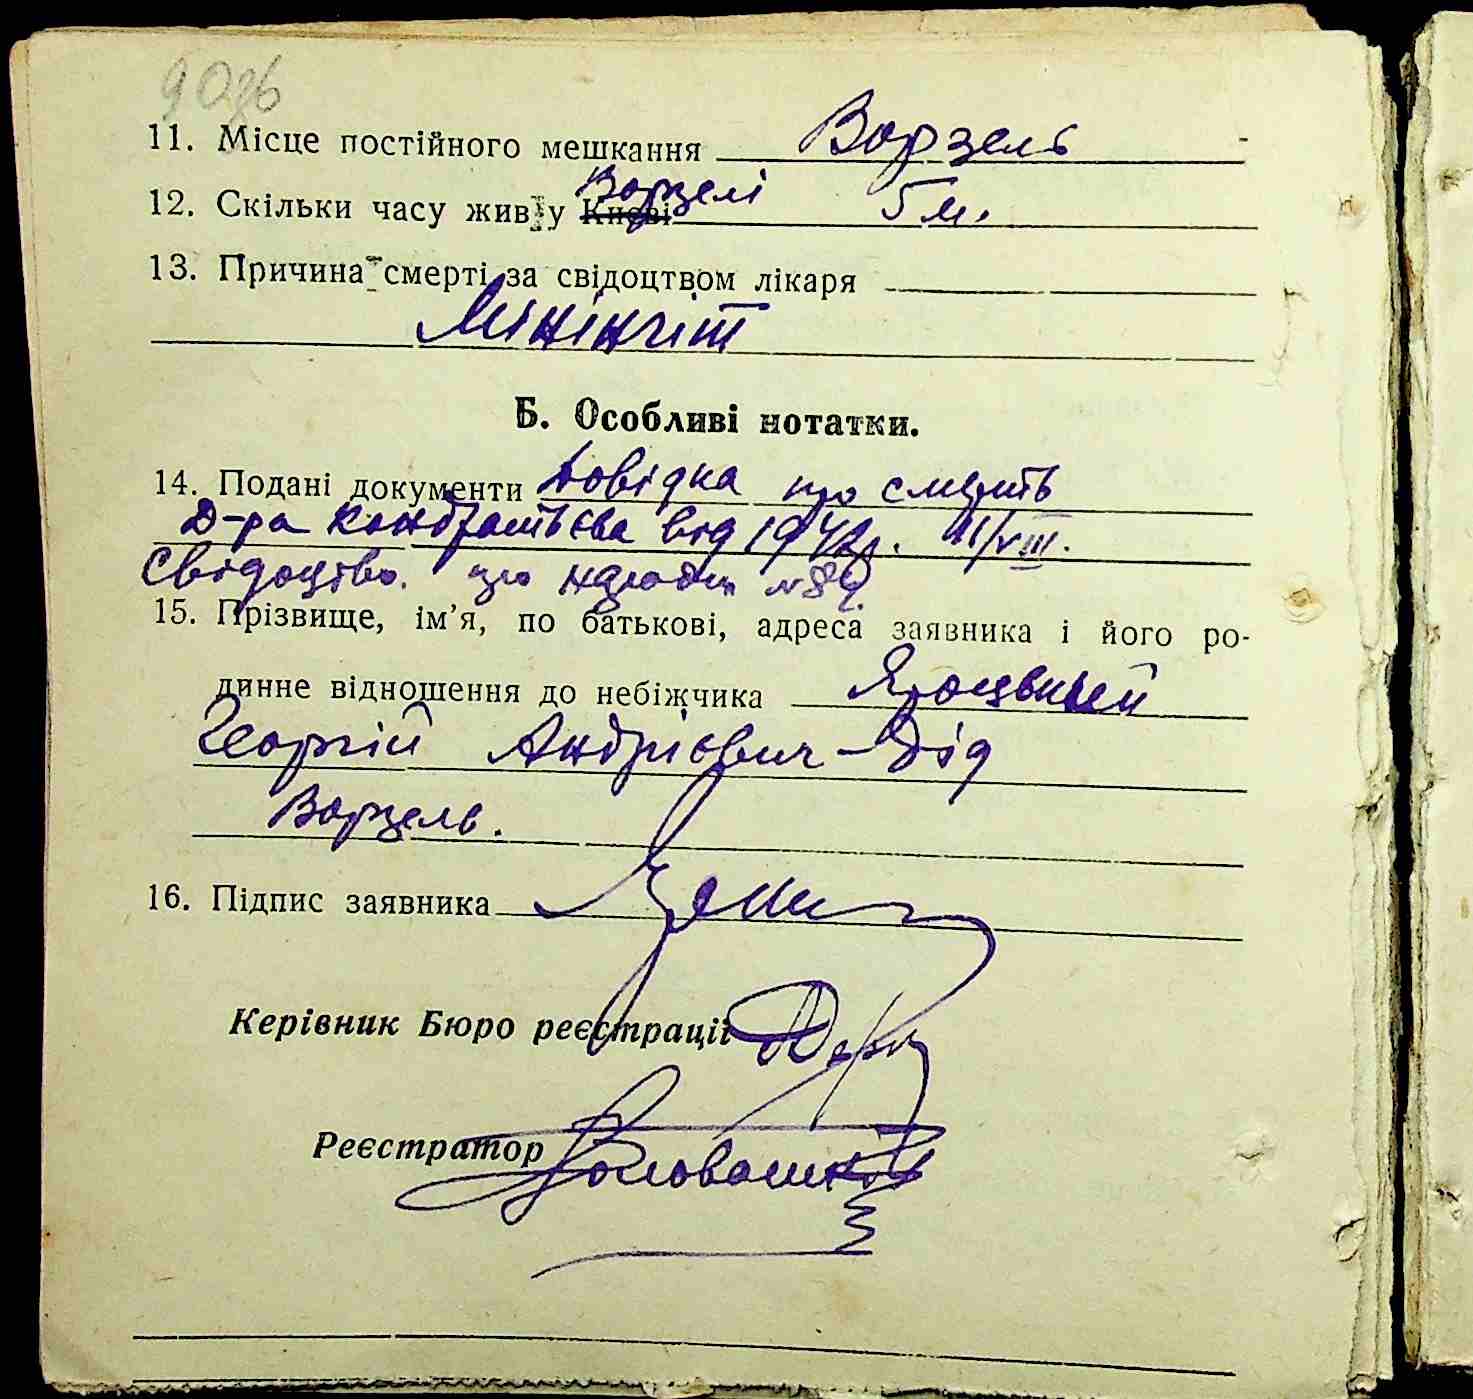 11. Місце постійного мешкання Ворзель
12. Скільки часу жив у Києві Ворзелі 5 м.
13. Причина смерті за свідоцтвом лікаря
Мінінгіт
Б. Особливі нотатки.
14. Подані документи Довідка про смерть
Д-ра Кондратьєва від 1942 р. 11/VIII.
Свідоцтво про народж №89.
15. Прізвище, ім’я, по батькові, адреса заявника і його ро-
динне відношення до небіжчика
Георгій Андрієвич – дід
Ворзель.
16. Підпис заявника
Керівник Бюро реєстрації
Реєстратор